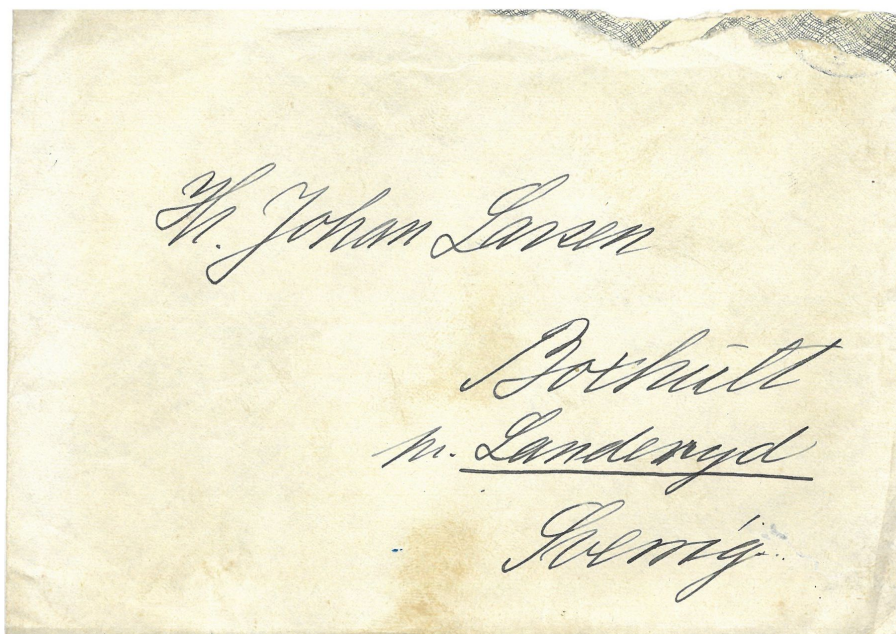 Hr. Johan Larsen
Boxhult
pr. Landeryd
Sverrig